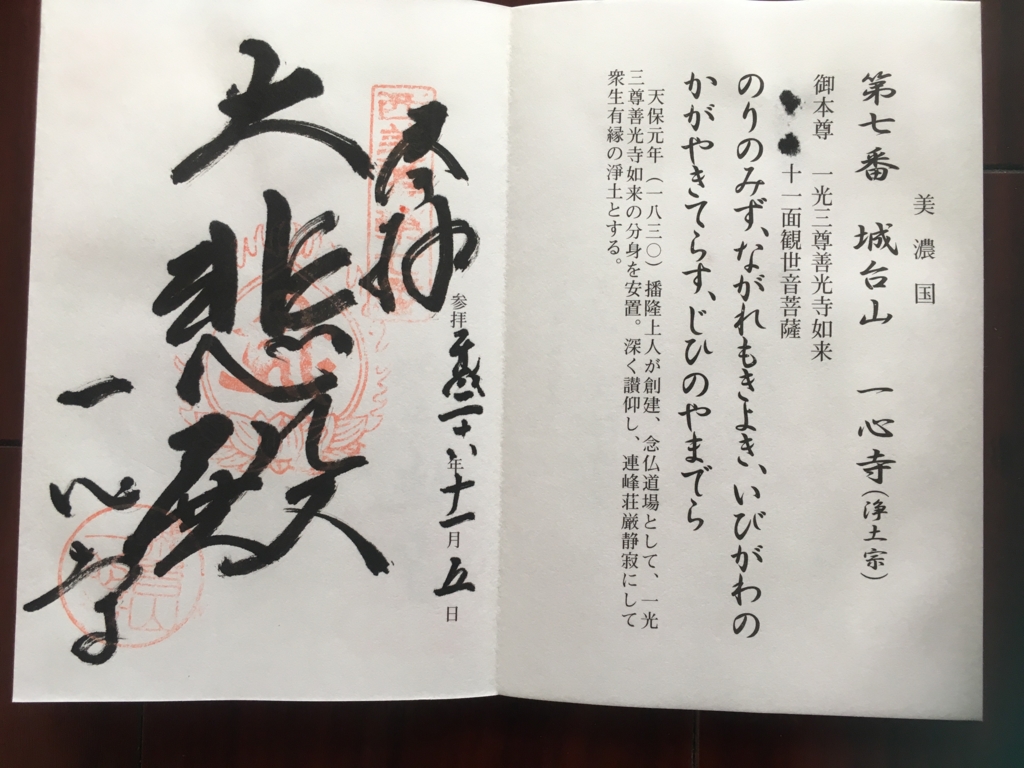 美濃国
第七番　城台山　一心寺（浄土宗）
御本尊　一光三尊善光寺如来
十一面観世音菩薩
のりのみず、ながれもきよき、いびがわの
かがやきてらす、じひのやまでら
天保元年（一八三〇）播隆上人が創建、念仏道場として、一光
三尊善光寺如来の分身を安置。深く讃仰し、連峰荘厳静寂にして
衆生有縁の淨土とする。
奉拝
参拝 平成二十八年十一月五日
大悲殿
一心寺